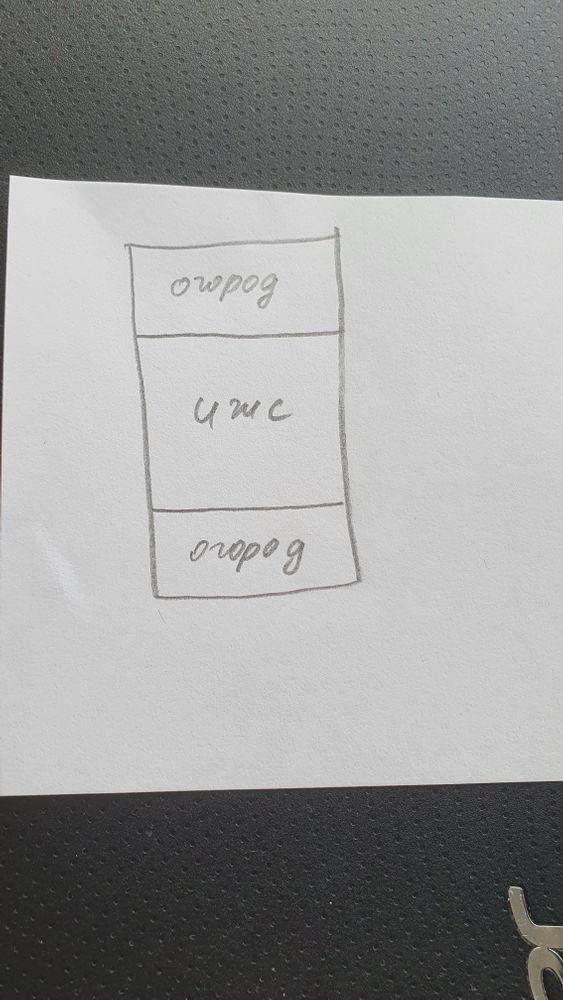 огород
ижс
огород